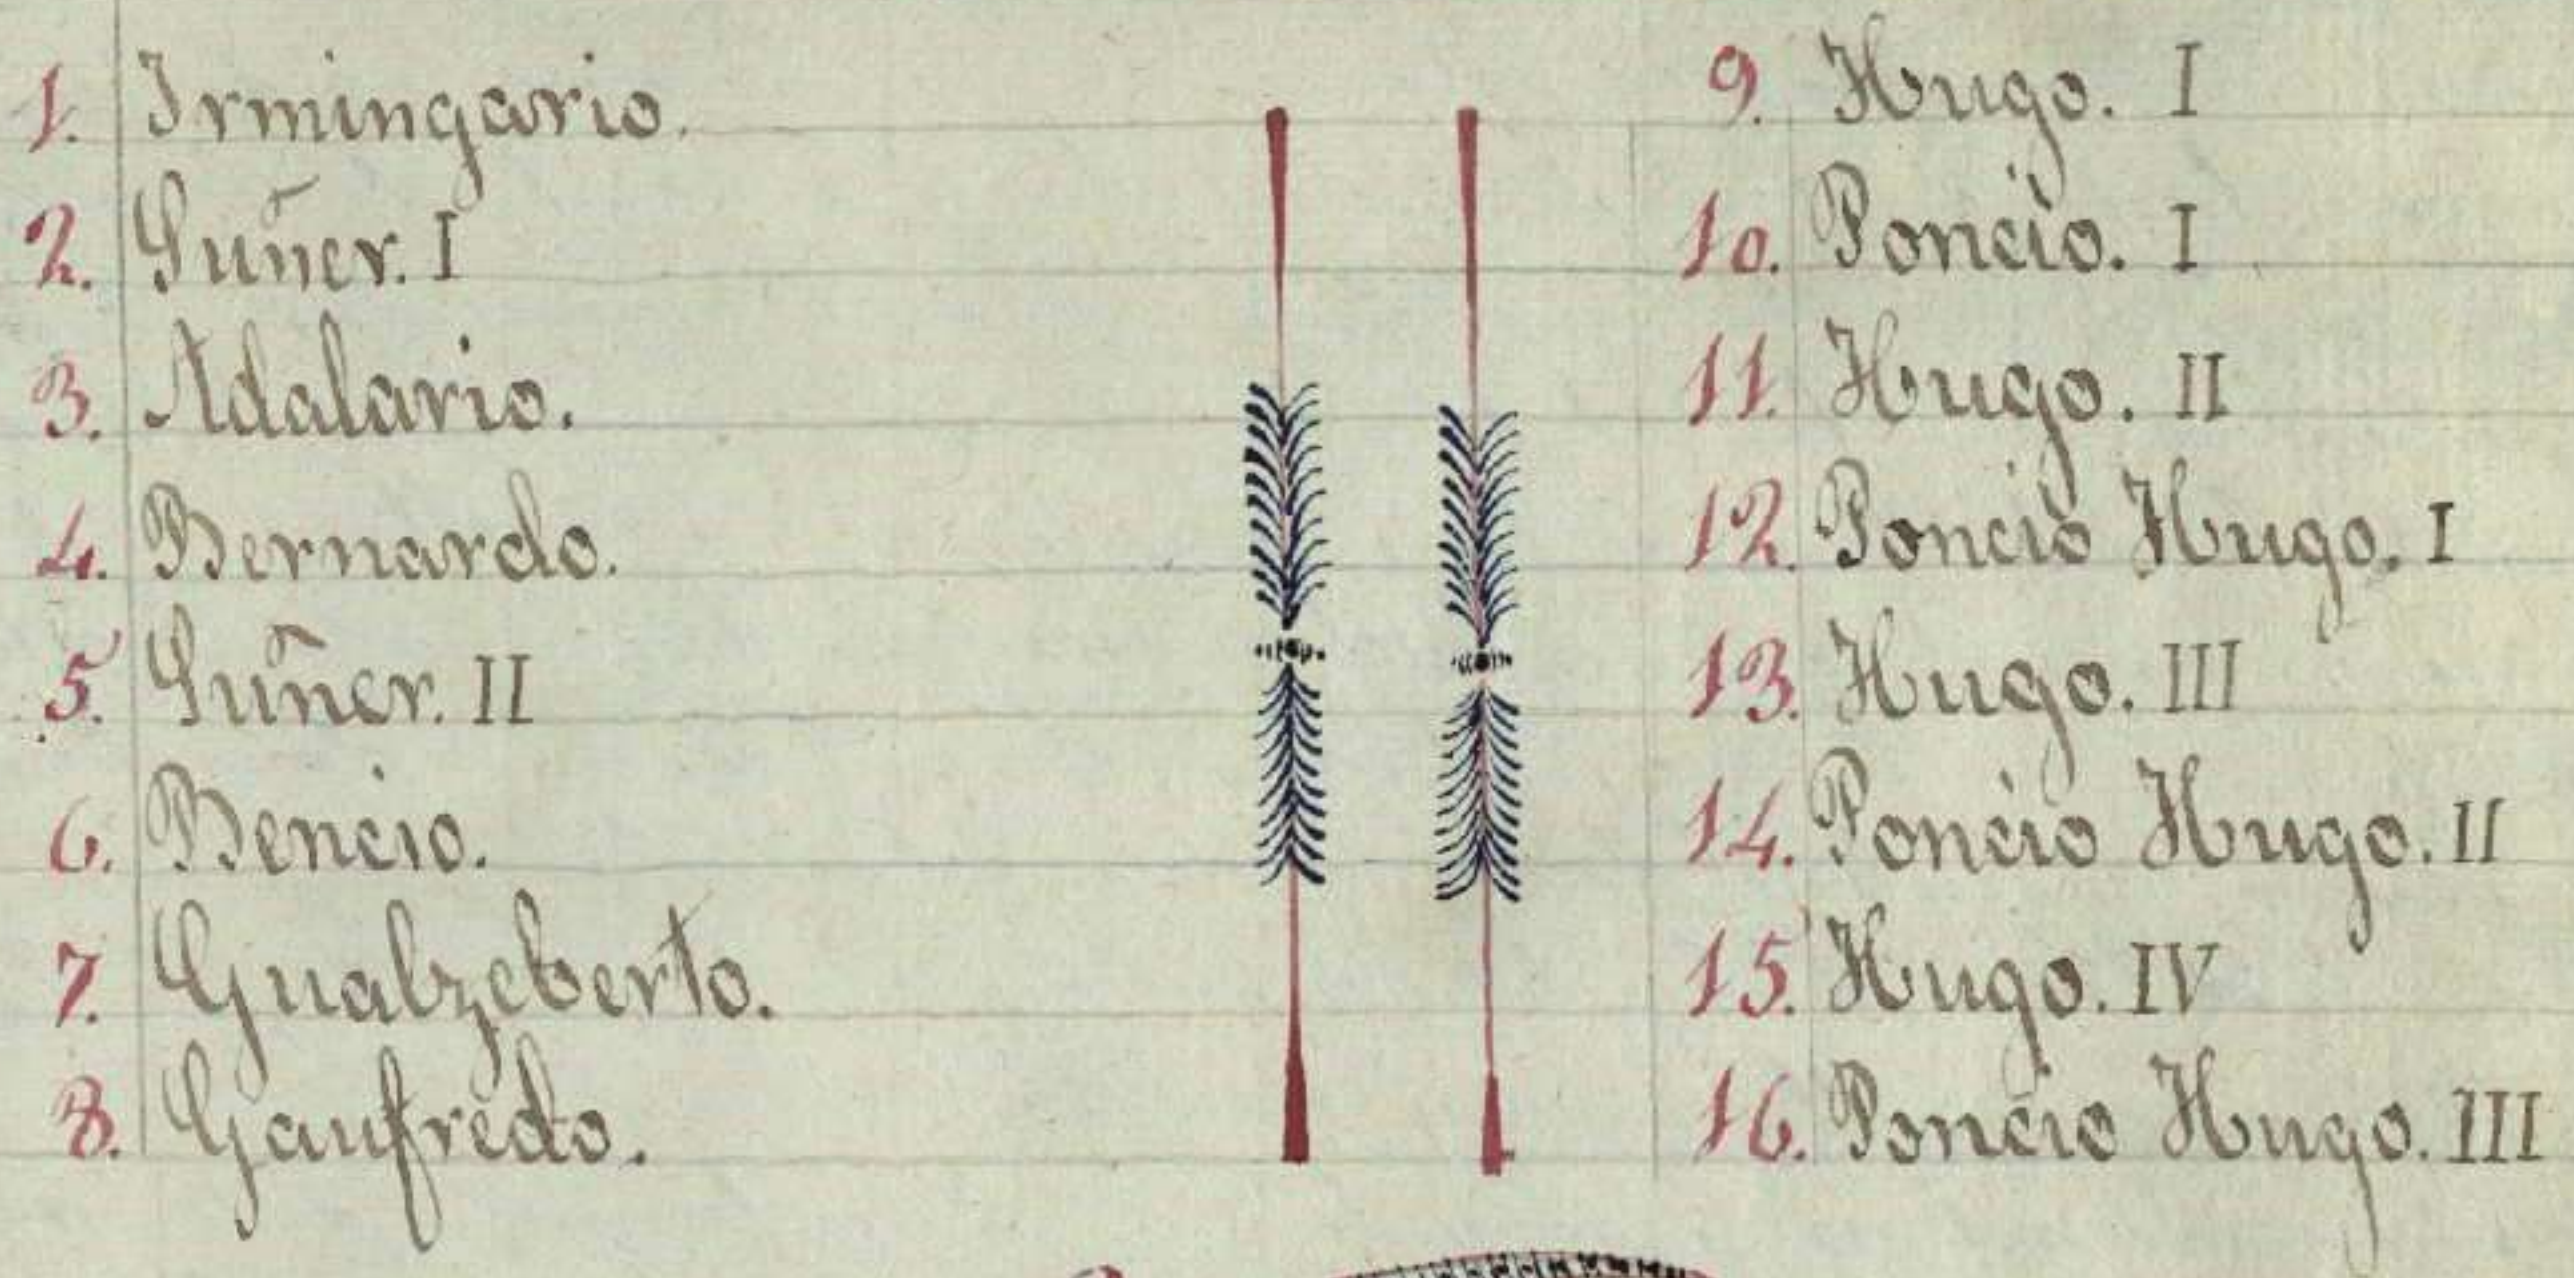 1. Irmingario.
2. Suñer. I
3. Adalario.
4. Bernardo.
5. Suñer. II
6. Bencio.
7. Gualzeberto.
8. Gaufredo.
9. Hugo. I
10. Poncio. I
11. Hugo. II
12. Poncio Hugo. I
13. Hugo. III
14. Poncio Hugo. II
15. Hugo. IV
16. Poncio Hugo. III